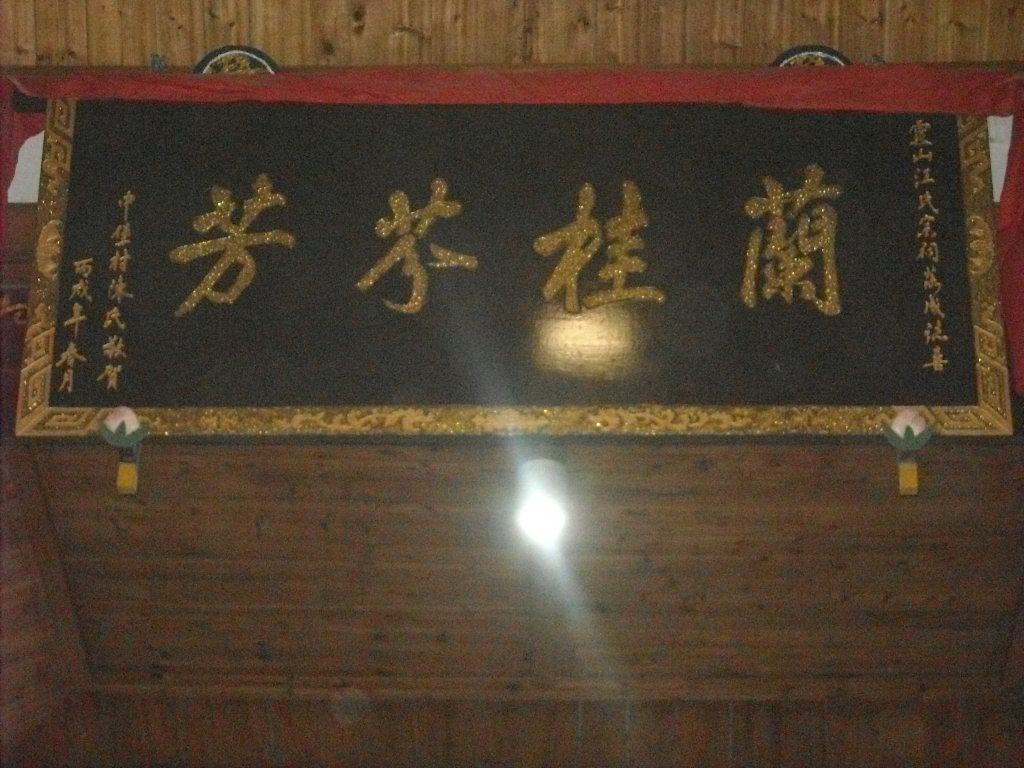 靈山江氏宗祠落成誌喜
蘭桂芬芳
中住村洙氏敬賀
丙戌年春月